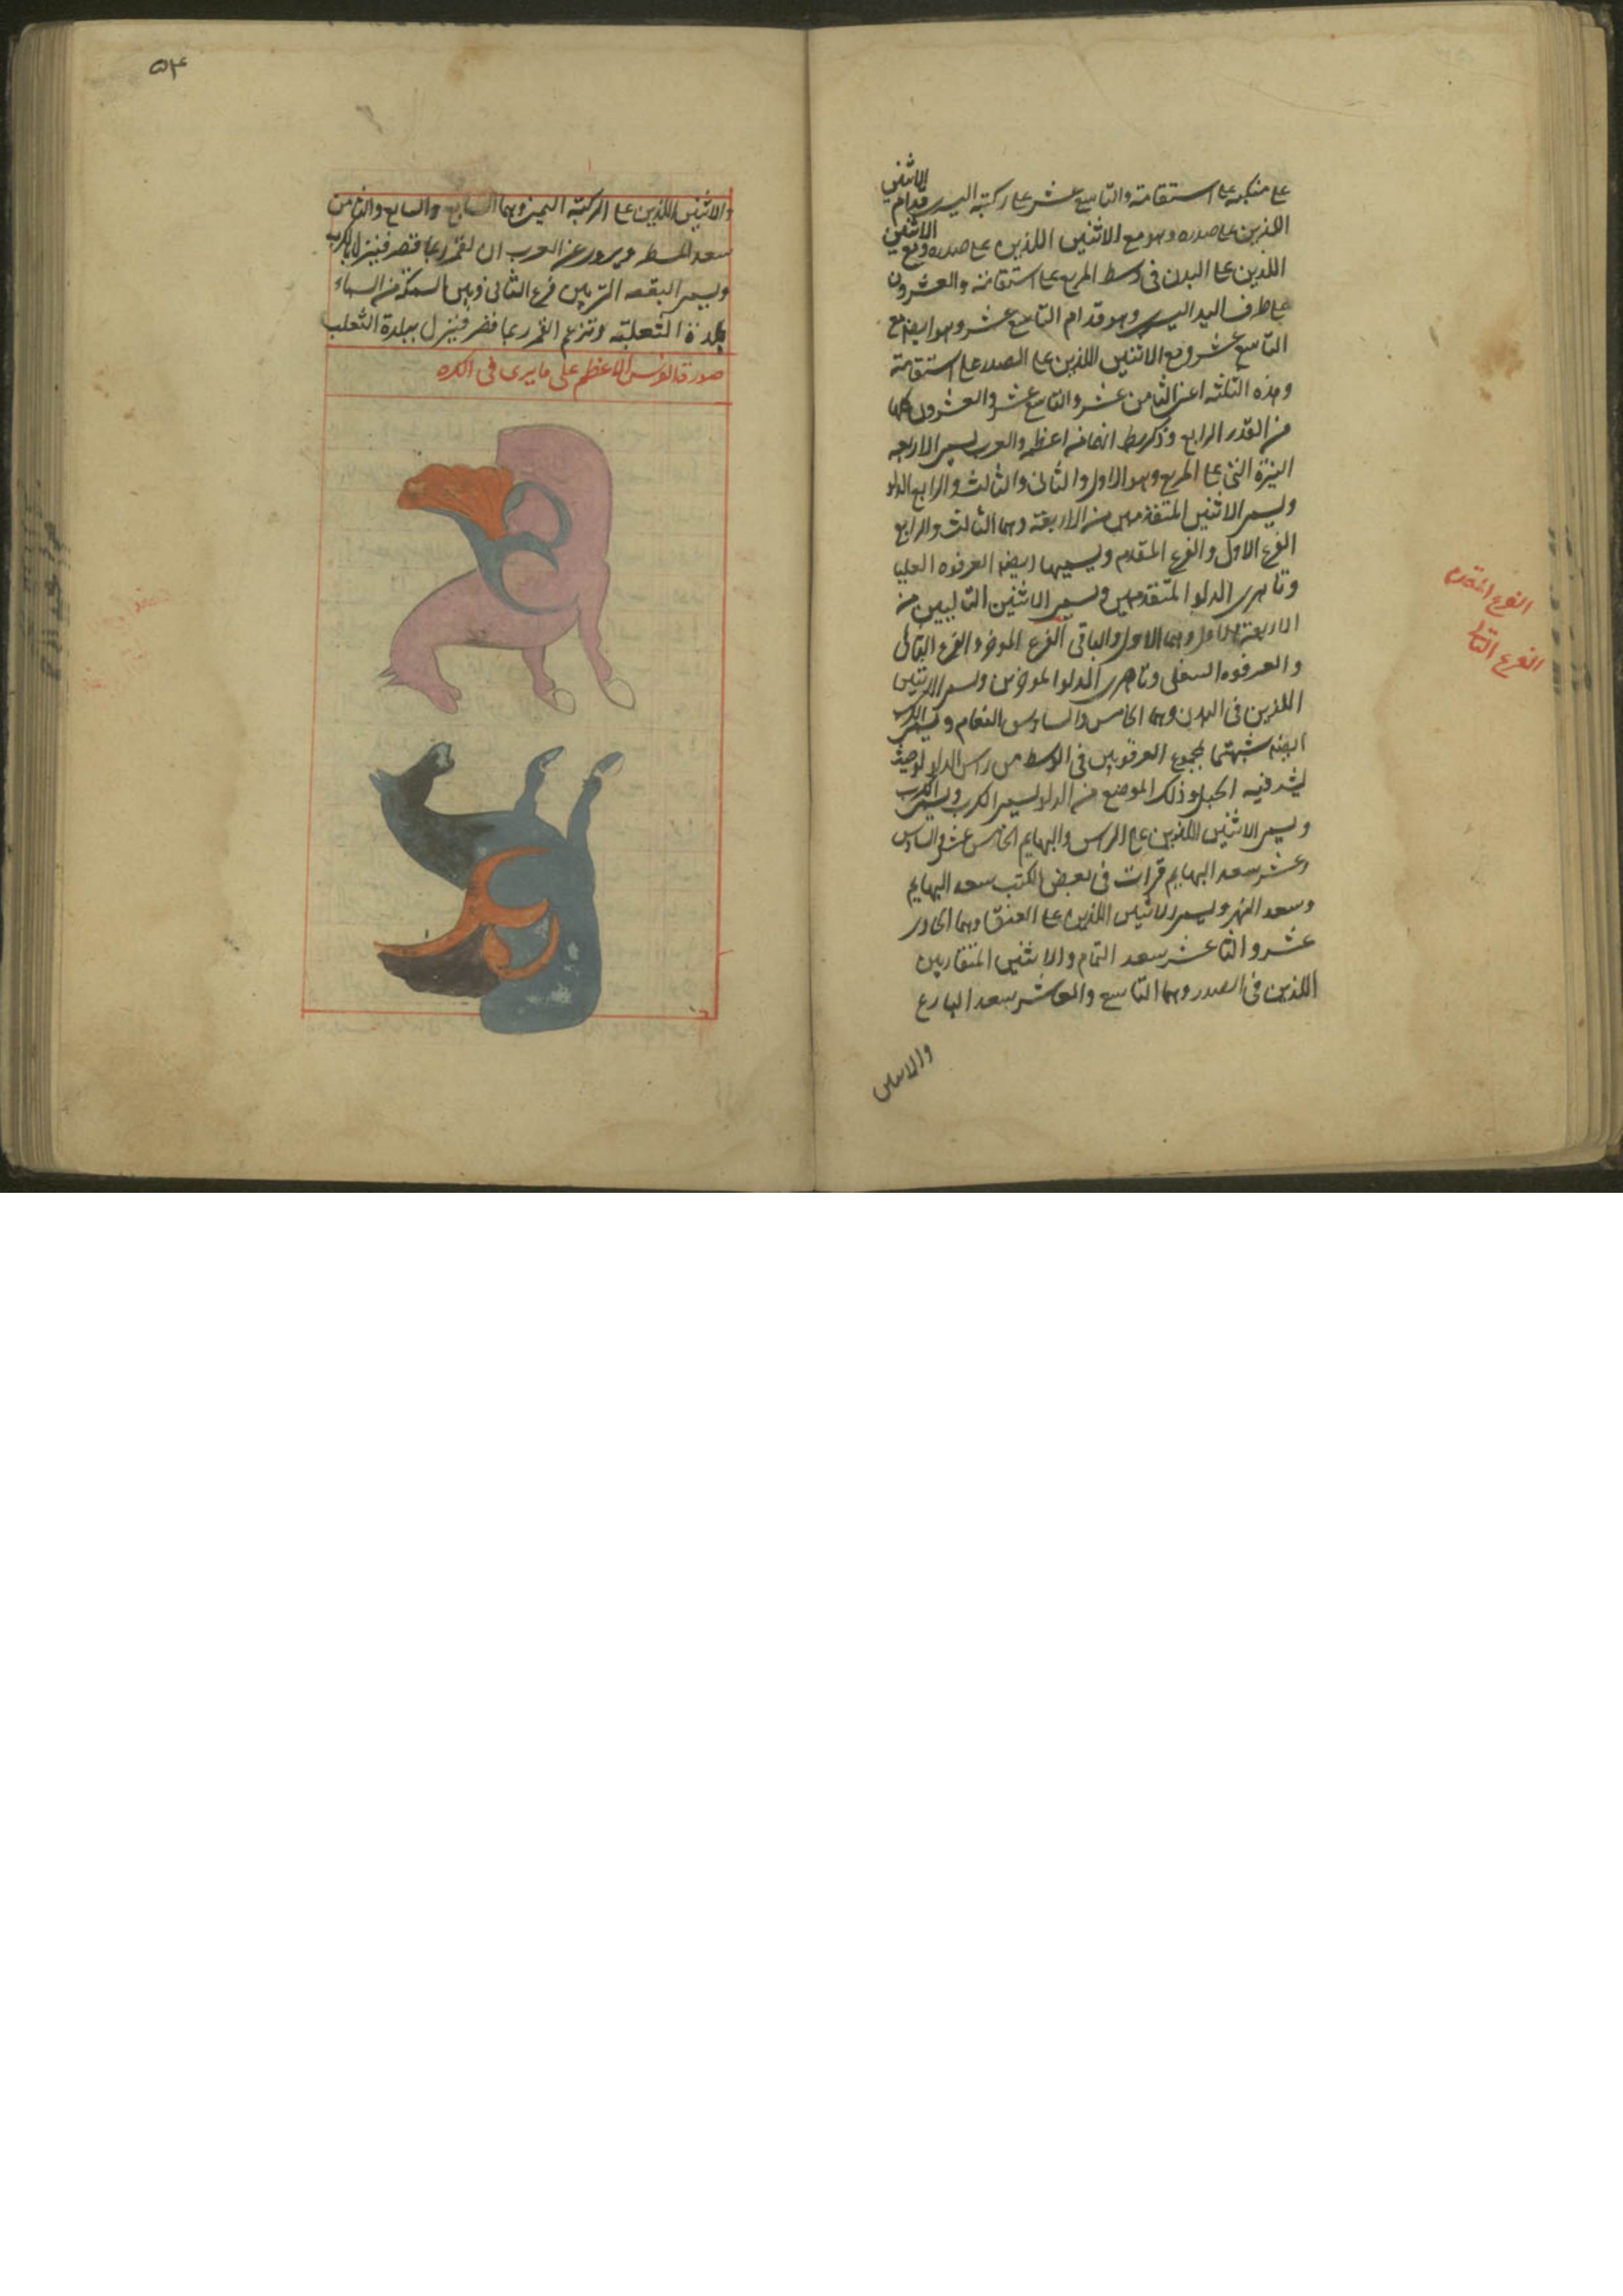 على منكبه على استقامته والتاسع عشر على ركبته اليسرى قدام الاثنين
اللذين على صدره وهو مع الاثنين اللذين على صدره ومع الاثنين
اللذين على البدن فى وسط المربع على استقامته والعشرون
على طرف اليد اليسرى وهو قدام التاسع عشر وهو ايضا مع
التاسع عشر ومع الاثنين اللذين على الصدر على استقامته
وهذه الثلثه اعنى الثامن عشر والتاسع عشر والعشرون كلها
من القدر الرابع وذكر بط انها من اعظمه والعرب يسمى الاربعه
النيرة التى على المربع وهو الاول والثانى والثالث والرابع الدلو
ويسمى الاثنين المتقدمين من الاربعة وهما الثالث والرابع
الفرع الاول والفرع المقدم ويسميها ايضا العرقوه العليا
وناهزى الدلو المتقدمين ويسمى الاثنين التاليين من
الاربعة وهما الاول والثانى الفرع الموخر والفرع الثانى
والعرقوه السفلى وناهزى الدلو الموخرين ويسمى الاثنين
اللذين فى البدن وهما الخامس والسادس النعام ويسمى الكرب
ايضا شبهتهما بمجموع العرقوتين فى الوسط من راس الدلو حيث
يشد فيه الحبل وذلك الموضع من الدلو يسمى الكرب ويسمى الكرب
ويسمى الاثنين اللذين على الراس والبهايم الخامس عشر والسادس
عشر سعد البهايم قرات فى بعض الكتب سعد البهايم
وسعد النهر ويسمى الاثنين اللذين على العنق وهما الحادى
عشر والثانى عشر سعد الهمام والاثنين المتقاربين
اللذين فى الصدر وهما التاسع والعاشر سعد البارع
والاثنين
الفرع المقدم
الفرع الثانى
٥٤
والاثنين اللذين على الركبة اليمنى وهما السابع والثامن
سعد المطر ويروى عن العرب ان القمر ربما قصر فينزل بالكرب
ويسمى البقعه التى بين فرع الثانى وبين السمكة من السماء
بلدة الثعلب وتزعم القمر ربما قصر فينزل ببلدة الثعلب
صورة الفرس الاعظم على ما يرى فى الكره